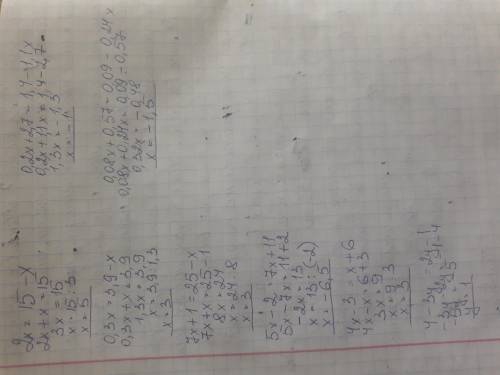 2x = 15 - x
2x + x = 15
3x = 15
x = 15 : 3
x = 5
0,3x = 3,9 - x
0,3x + x = 3,9
1,3x = 3,9
x = 3,9 : 1,3
x = 3
7x + 1 = 25 - x
7x + x = 25 - 1
8x = 24
x = 24 : 8
x = 3
5x - 2 = 7x + 11
5x - 7x = 11 + 2
-2x = 13
x = 13 : (-2)
x = -6,5
4x - 3 = x + 6
4x - x = 6 + 3
3x = 9
x = 9 : 3
x = 3
4 - 3y = 2y - 1
-3y - 2y = -1 - 4
-5y = -5
y = 1
0,2x + 2,7 = 1,4 - 1,1x
0,2x + 1,1x = 1,4 - 2,7
1,3x = -1,3
x = -1
0,08x + 0,57 = 0,09 - 0,24x
0,08x + 0,24x = 0,09 - 0,57
0,32x = -0,48
x = -1,5